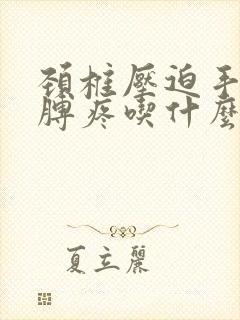 頚椎壓迫手
脾疼喫什麼
夏立麗